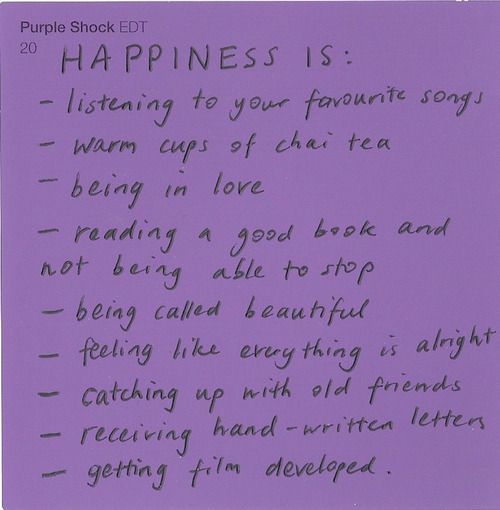 Purple Shock EDT
20
HAPPINESS IS:
- listening to your favourite songs
- warm cups of chai tea
- being in love
- reading a good book and
not being able to stop
- being called beautiful
- feeling like everything is alright
- catching up with old friends
- receiving hand-written letters
- getting film developed.